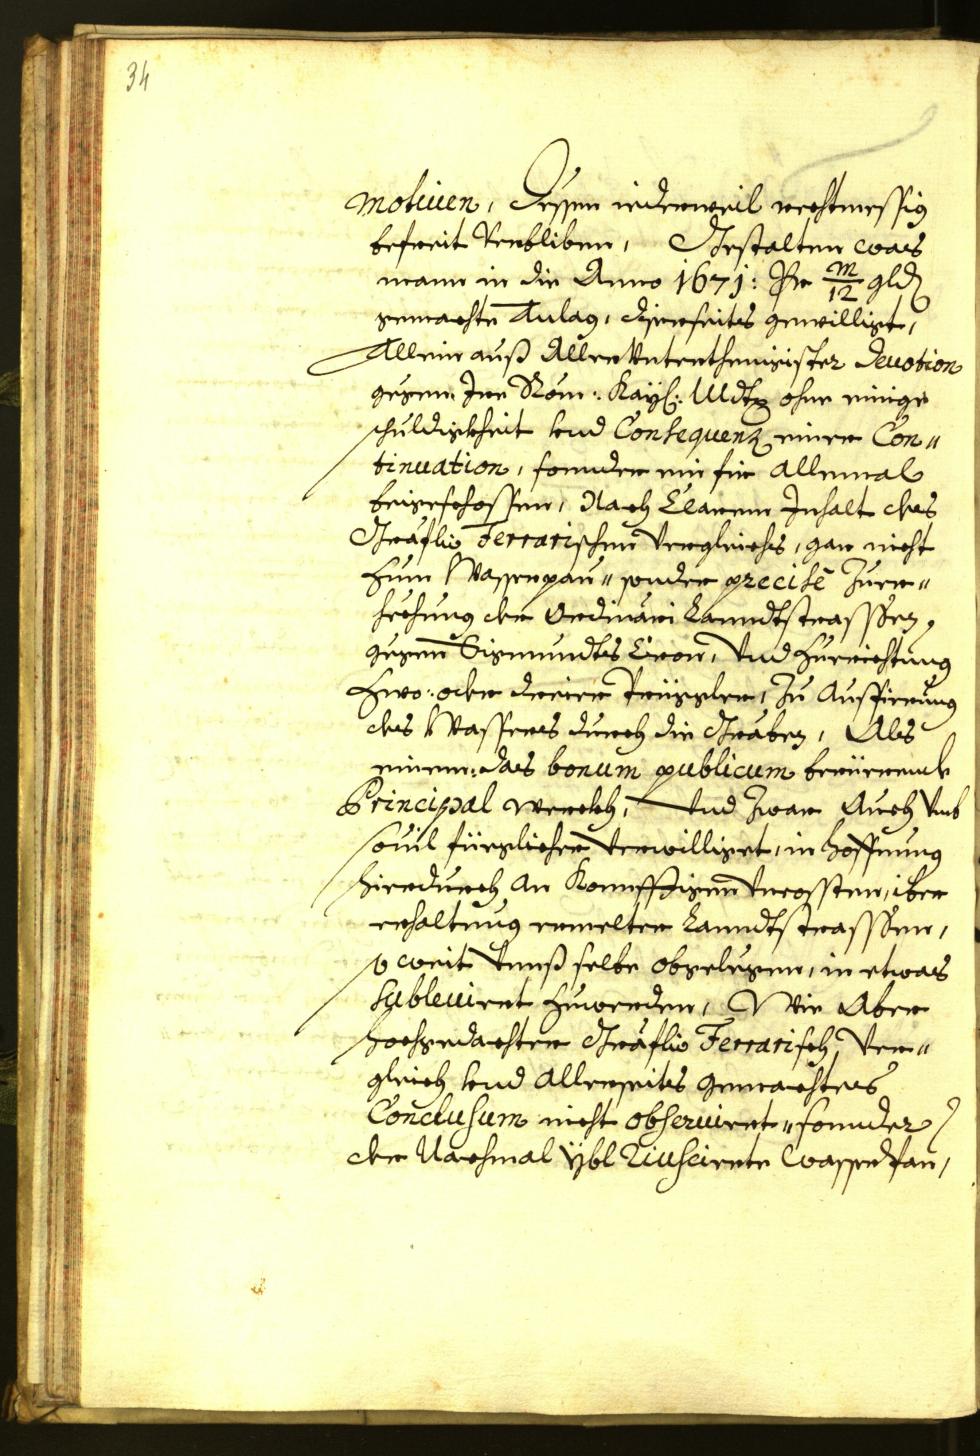 34
motiuen, dessen iederweil rechtmessig
befreit verbliben, Gestalten was
mann in die Anno 1671: Per m/12 gld
gemachte Anlag, diserseits gewilliget,
Allein auß Aller Unterthenigister Deuotion
gegen Ire Röm: Kayß: Mdt: ohne einige
schuldigkheit und Consequenz einer Con„
tinuation, sonnder ein für allemal
beigeschossen, Nach Clarem Inhalt des
Gräflio Ferrarischen Vergleichs, gar nicht
zum Wasserpau„ sonder precisè Zuer„
hechung der Ordinari Lanndtstrasssen,
gegen Sigmundts Cron, Und Zuerichtung
Zwo: oder dreier Prüggler, Zu Ausfierung
des Wassers durch die Gräben, Als
einem: das bonum publicum berürende
Principal werckh, Und Zwar Auch Umb
souil fürgliche Verwilliget, in hoffnung
hierdurch An Konfftigen Uncossten, iber
erhaltung ermelter Lanndtstrasssen,
so weit Unnß selbe obgelegen, in etwas
subleuiert Zuwerden, Wie Aber
hochgedachter Gräflio Ferrarisch Ver„
gleich und Allerseits gemachtes
Conclusum nicht obseruiert„ sonnder
der Nachmal ybl Riuscierte Wasserpau,